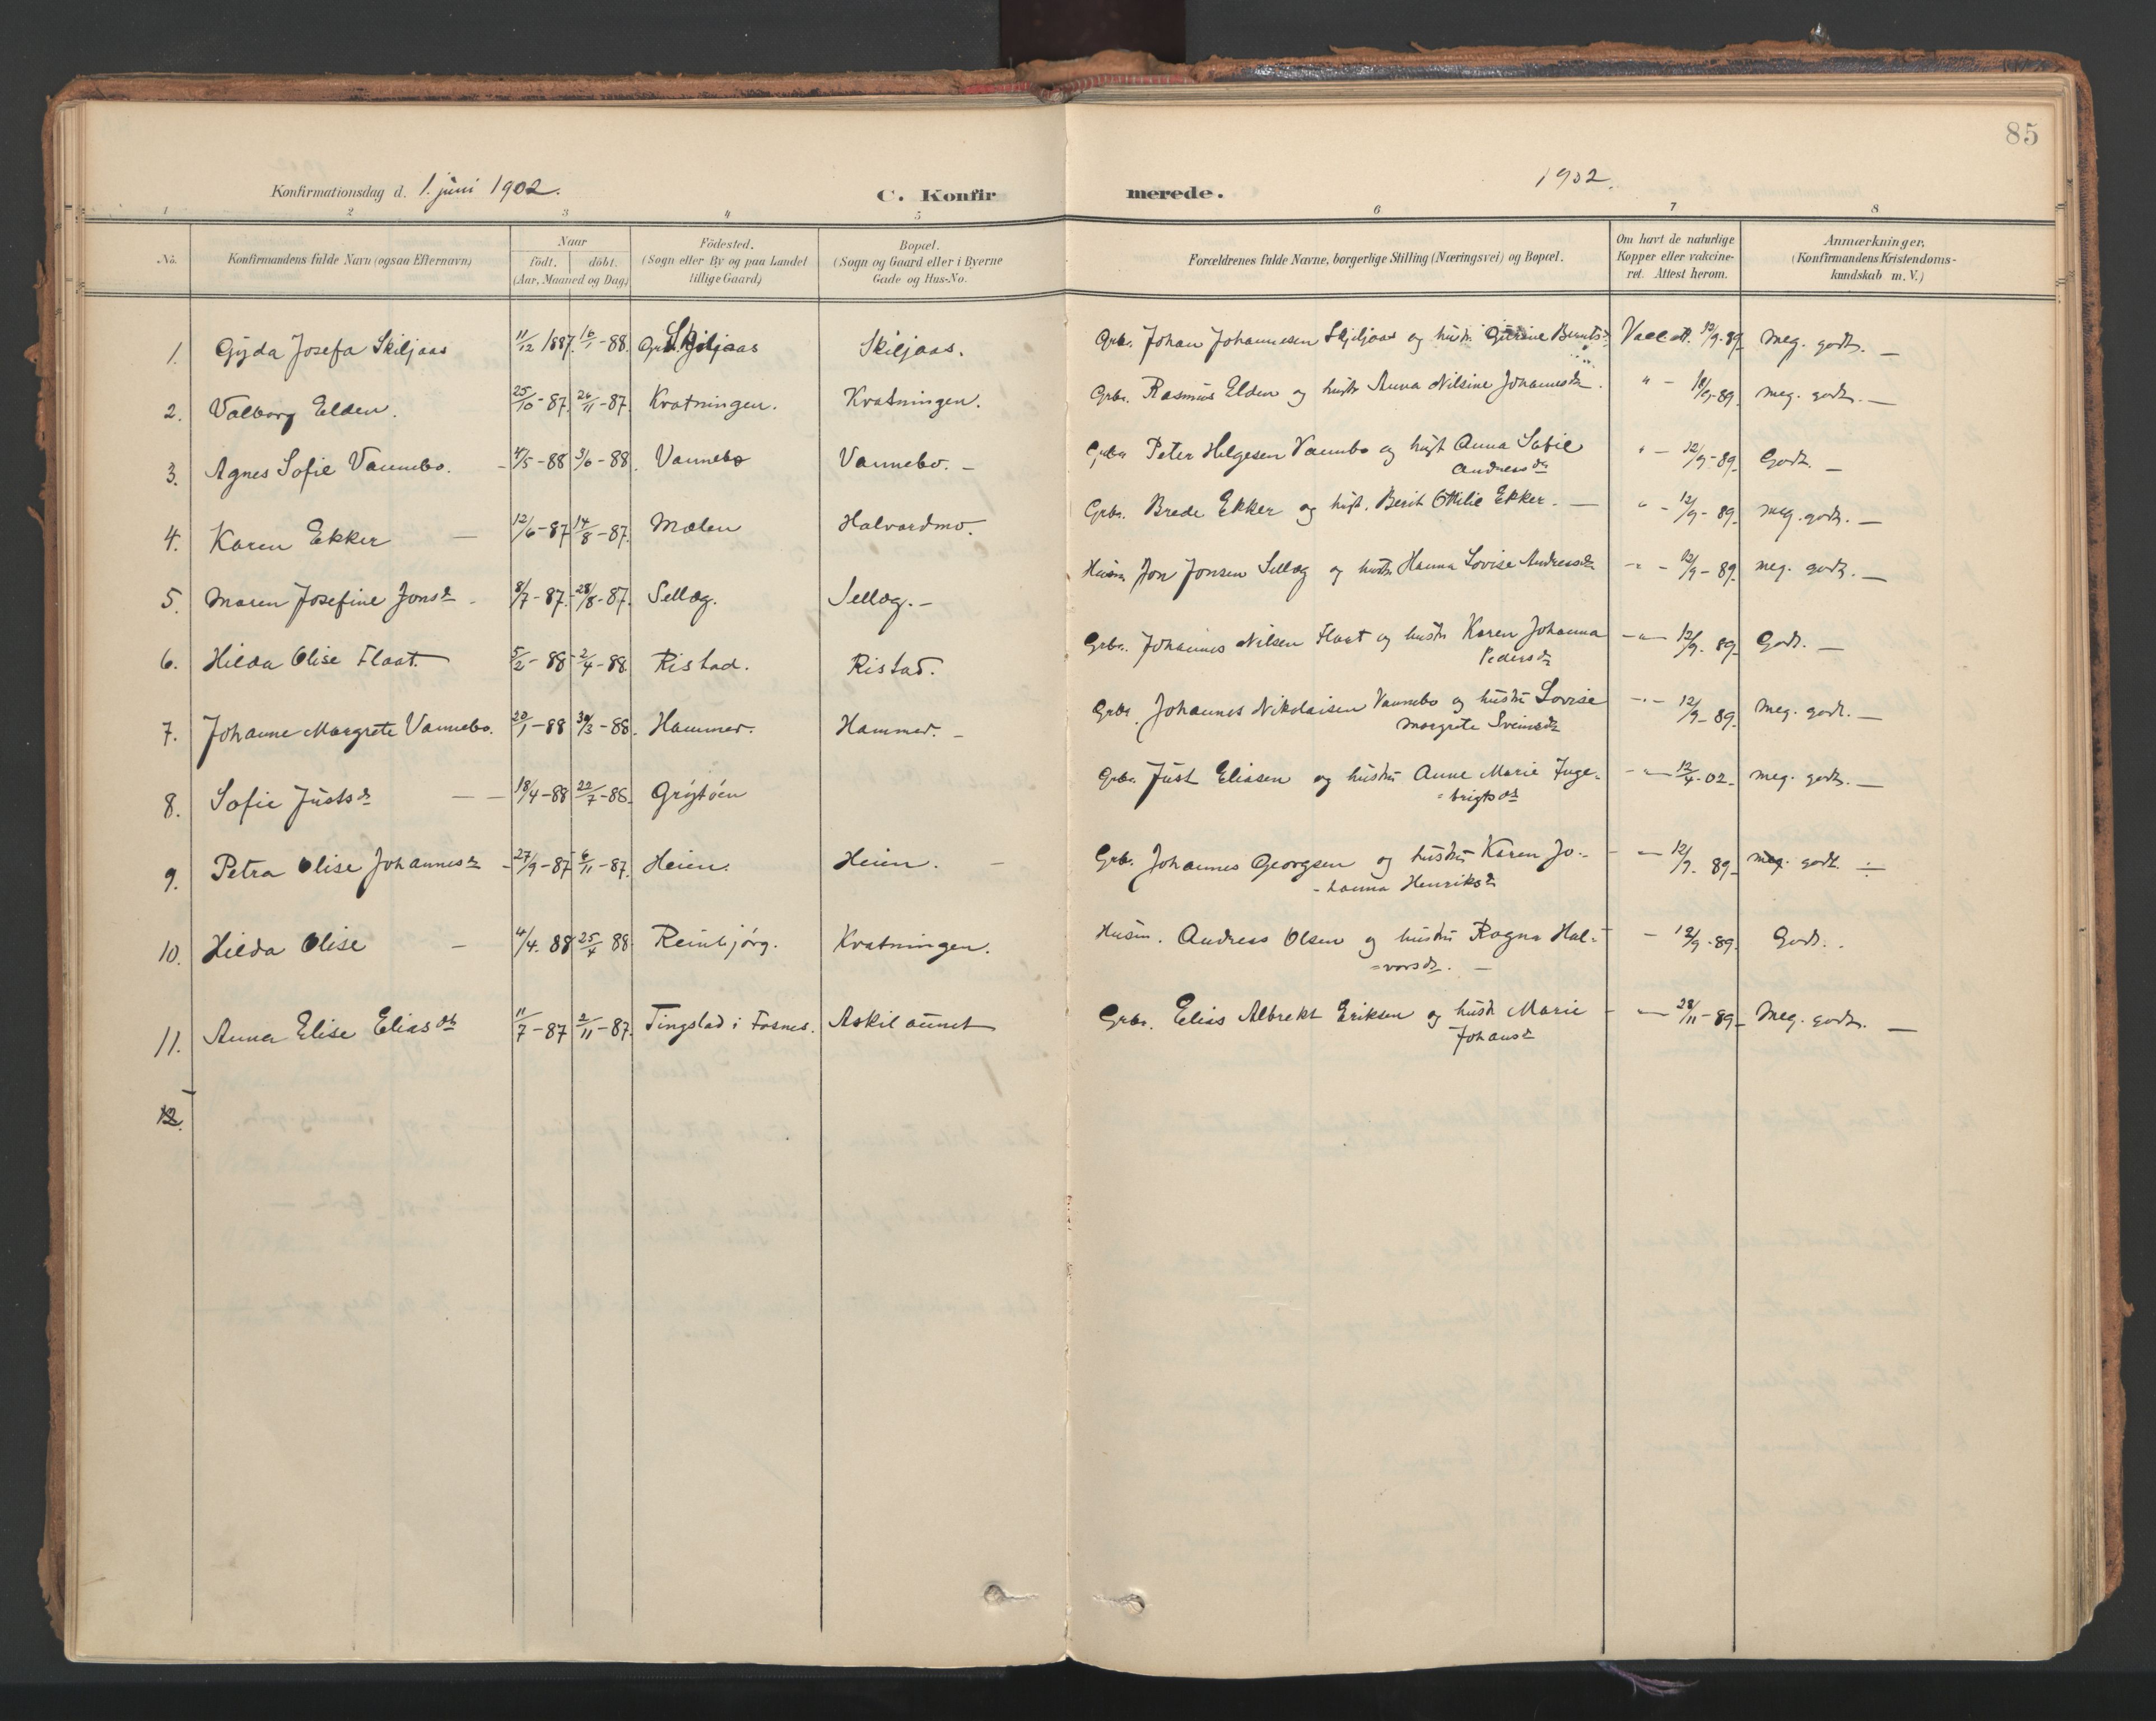 85
Konfirmationsdag d. 1. juni 1902. C. Konfir merede. 1902.
1 2 3 4 5 6 7 8
No. Konfirmandens fulde Navn (ogsaa Efternavn) Naar født. døbt. (Aar, Maaned og Dag) Födested. (Sogn eller By og paa Landet tillige Gaard) Bopæl. (Sogn og Gaard eller i Byerne Gade og Hus-No. Forældrenes fulde Navne, borgerlige Stilling (Næringsvei) og Bopæl. Om havt de naturlige Kopper eller vakcineret. Attest herom. Anmærkninger, (Konfirmandens Kristendomskundskab m. V.)
1. Gyda Josefa Skiljaas 11/12 1887. 16/1-88. Skiljaas Skiljaas. Grbr. Johan Johannesen Skjiljaas og hustr. Bernts- Vacc. att. 12/9-89 Meg. godt. —
2. Valborg Elden. 25/10-87. 26/11-87. Kvatningen. Kvatningen. Grbr. Rasmus Elden og hustr Anna Nilsine Johannesdr. " - 18/9-89 Meg. godt. —
3. Agnes Sofie Vannebo. - 4/5-88 3/6-88. Vannebo Vannebo. - Grbr Peter Helgesen Vannebo og hust Anna Sofie " - 12/9-89 Godt. —
Andreasdr
4. Karen Ekker — 12/6-87 14/8-87. Mælen Halvardmo. Grbr. Brede Ekker og hust. Berit Ottilie Ekker. — " - 12/9-89 Meg. godt. —
5. Maren Josefine Jonsdr - 8/7-87. 28/8-87. Sellæg. Sellæg. - Husm Jon Jonsen Sellæg og hustr Hanna Lovise Andreasdr " - 12/9-89 Meg. godt. —
6. Hilda Olise Flaat. 5/2-88 2/4-88 Ristad. Ristad. Grbr. Johannes Nilsen Flaat og hustr Karen Johanna —"— 12/9. 89 Godt. —
Pedersdr
7. Johanne Margrete Vannebo. 20/1-88 30/3-88. Hammer. Hammer. - Grbr. Johannes Nikolaisen Vannebo og hustr Lovise —"— 12/9-89. Meg. godt. —
Margrete Sveinsdr
8. Sofie Justsdr — — 18/4-88 22/7-88. Grøjtöen Grbr Just Eliasen og hustru Anne Marie Inge- -"- 12/4-02- Meg. godt. —
=brigtsdr
9. Petra Olise Johannesdr - 27/9-87 6/11-87. Heien. Heien. — Grbr. Johannes Georgsen og hustru Karen Jo- — 12/9. 89 meg. godt. —
-hanna Henriksdr
10. Hilda Olise - 4/4. 88 25/4 88 Reinbjørg. Kvatningen. Husm. Andreas Olsen og hustru Ragna Hal- - 12/9-89. Godt.
=vorsdr. —
11. Anna Elise Eliasdr 11/7-87 2/11-87. Tingstad i Fosnes. Askilaunet Grbr. Elias Albrekt Eriksen og hustr Marie - 28/11-89 Meg. godt. —
Johansdr
12.